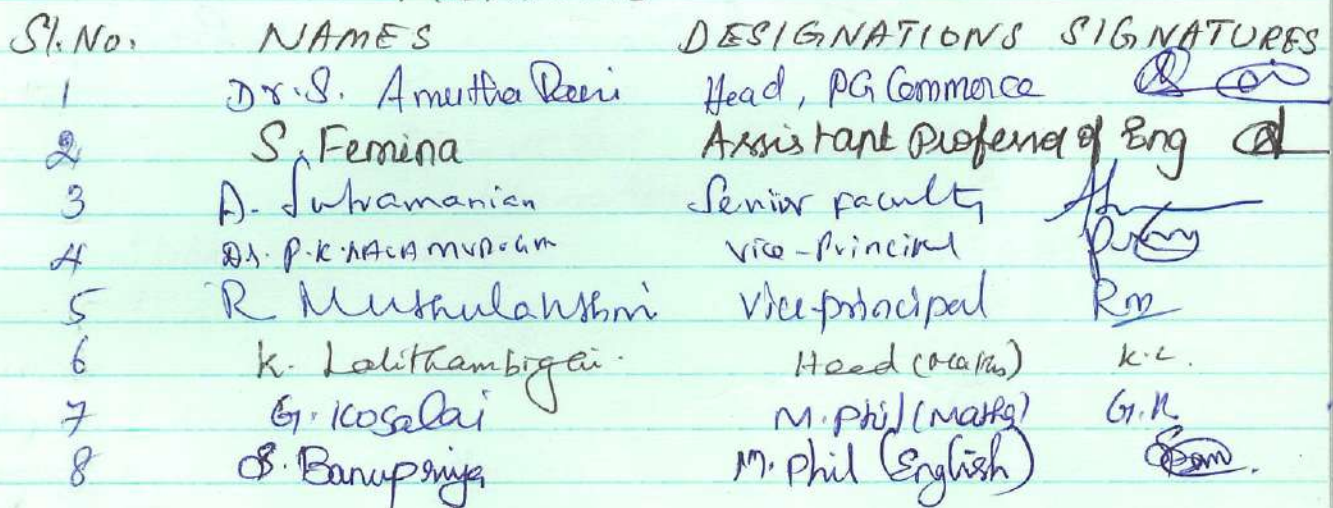 Sl. No. NAMES DESIGNATIONS SIGNATURES
1 Dr. S. Amutha Rani Head, PG Commerce
2 S. Femina Assistant Professor of Eng
3 A. Subramanian Senior Faculty
4 Dr. P.K. Vice-Principal
5 R Muthulakshmi Vice-principal Rm
6 K. Lalithambigai. Head (Maths) K.L.
7 G. Kosalai M.Phil (Maths) G.K
8 S. Banupriya M.Phil (English)